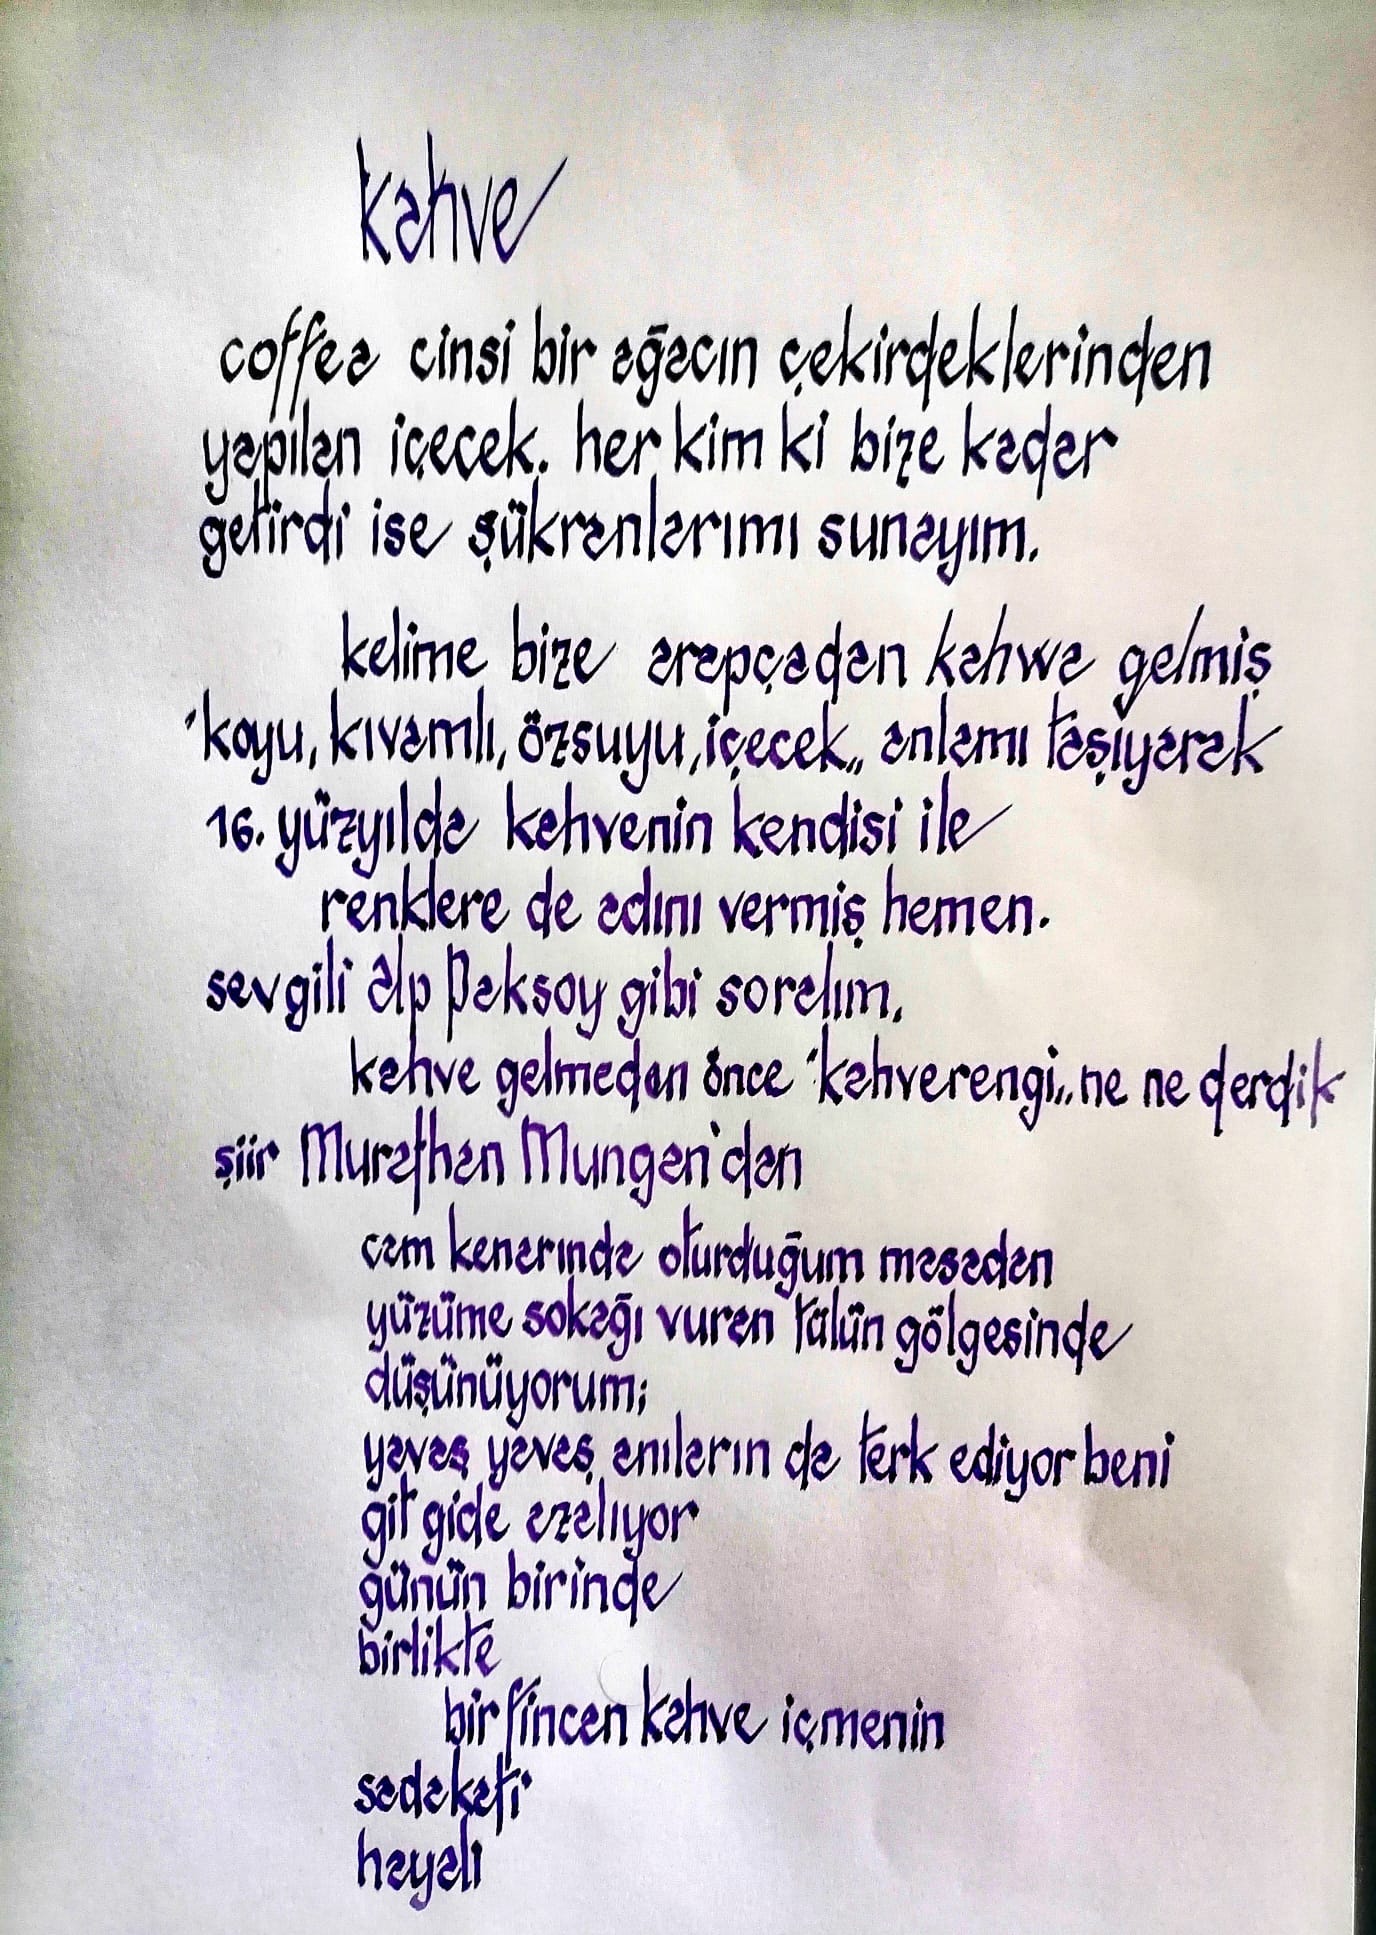 kahve
coffea cinsi bir ağacın çekirdeklerinden
yapılan içecek. her kim ki bize kadar
getirdi ise şükranlarımı sunayım.
kelime bize arapçadan kahwa gelmiş
"koyu, kıvamlı, özsuyu, içecek„ anlamı taşıyarak
16. yüzyılda kahvenin kendisi ile
renklere de adını vermiş hemen.
sevgili Alp Paksoy gibi soralım.
kahve gelmeden önce "kahverengi„ ne ne derdik
şiir Murathan Mungan'dan
cam kenarında oturduğum masadan
yüzüme sokağı vuran tülün gölgesinde
düşünüyorum;
yavaş yavaş anıların da terk ediyor beni
git gide azalıyor
günün birinde
birlikte
bir fincan kahve içmenin
sadakati
hayali